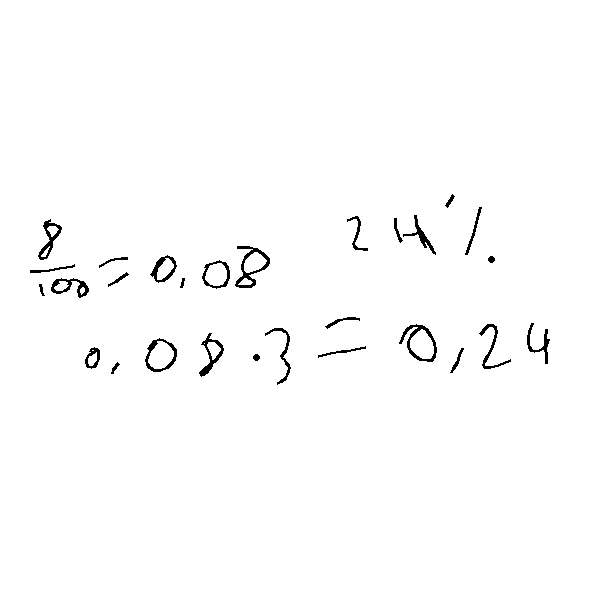 8/100 = 0,08 24%
0,08 · 3 = 0,24